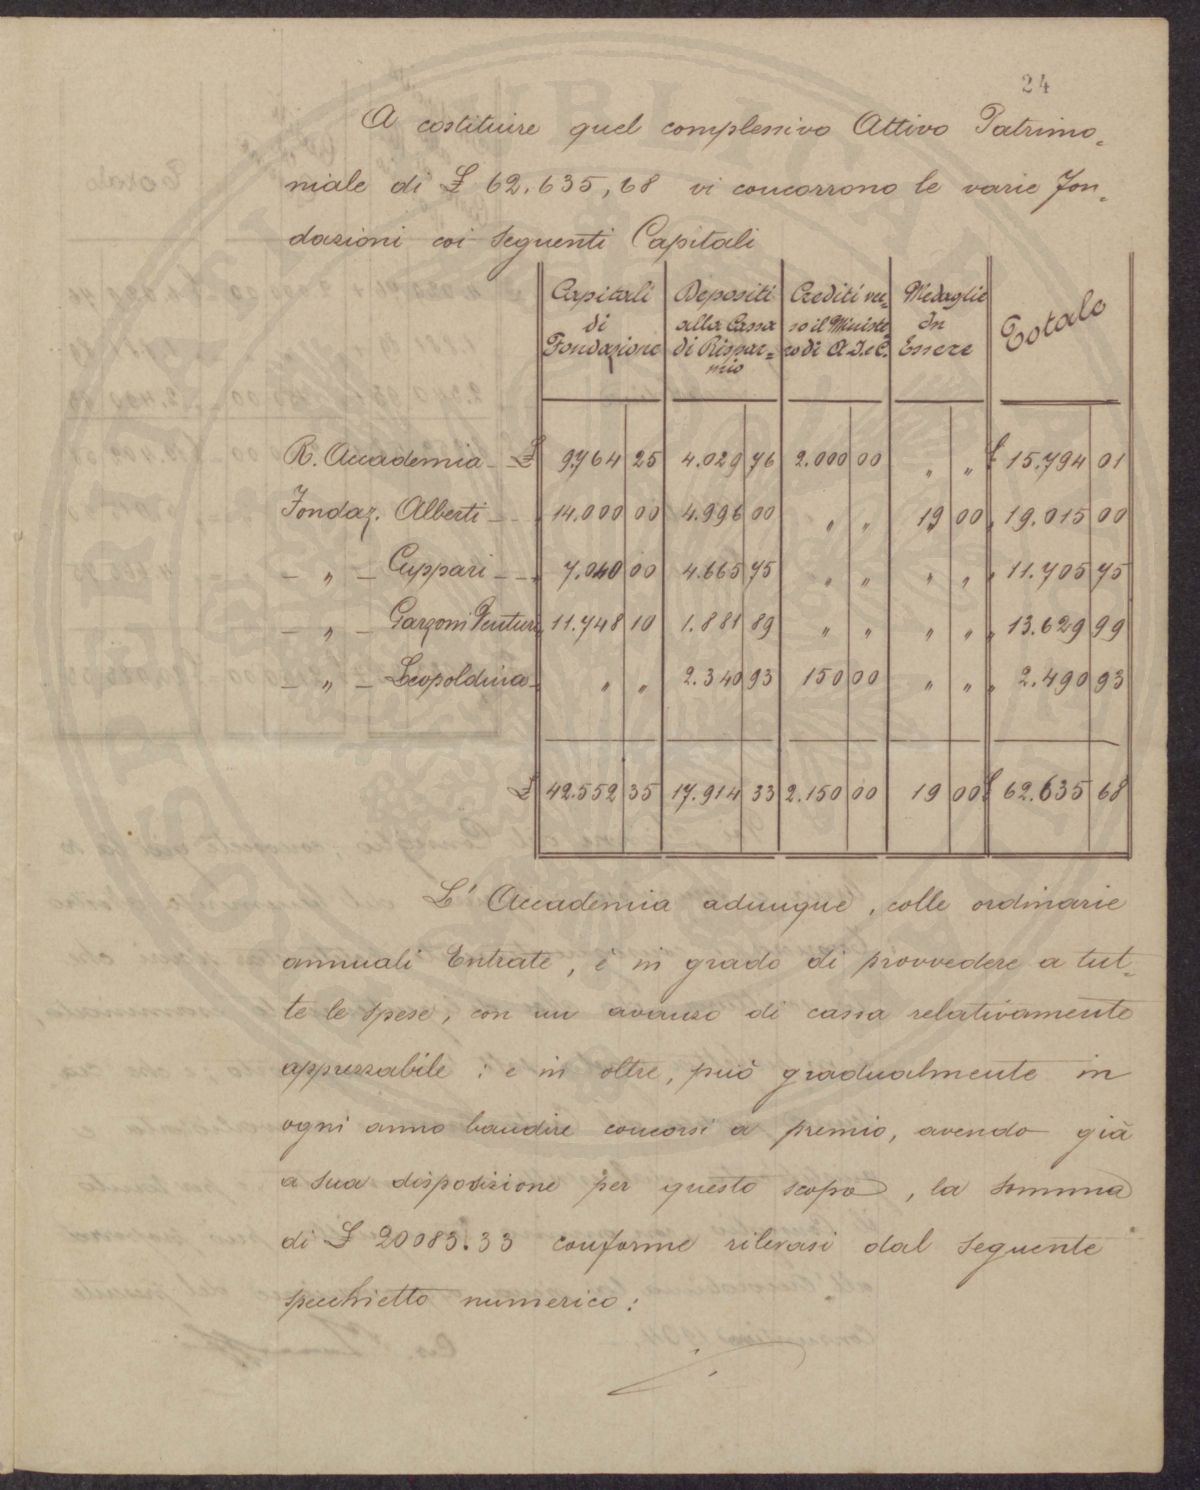 24
A costituire quel complessivo Attivo Patrimo=
niale di £ 62.635,68 vi concorrono le varie Fon=
dazioni coi seguenti Capitali
Capitali di Fondazione | Depositi alla Cassa di Rispar=mio | Crediti ver=so il Ministe=ro di A.I. e C. | Medaglie In Essere | Totale
R. Accademia - £ 9764 25 | 4.029 76 | 2.000 00 | " " | £ 15.794 01
Fondaz. Alberti - - " 14.000 00 | 4.996 00 | " " | 19 00 | " 19.015 00
- " - Cuppari - - " 7.040 00 | 4.665 75 | " " | " " | " 11.705 75
- " - Garzoni Venturi " 11.748 10 | 1.881 89 | " " | " " | " 13.629 99
- " - Leopoldina - " " " | 2.340 93 | 150 00 | " " | " 2.490 93
£ 42.552 35 | 17.914 33 | 2.150 00 | 19 00 | £ 62.635 68
L' Accademia adunque, colle ordinarie
annuali Entrate, è in grado di provvedere a tut=
te le spese, con un avanzo di cassa relativamente
apprezzabile: e in oltre, può gradualmente in
ogni anno bandire concorsi a premio, avendo già
a sua disposizione per questo scopo, la somma
di £ 20083.33 conforme rilevasi dal seguente
specchietto numerico: